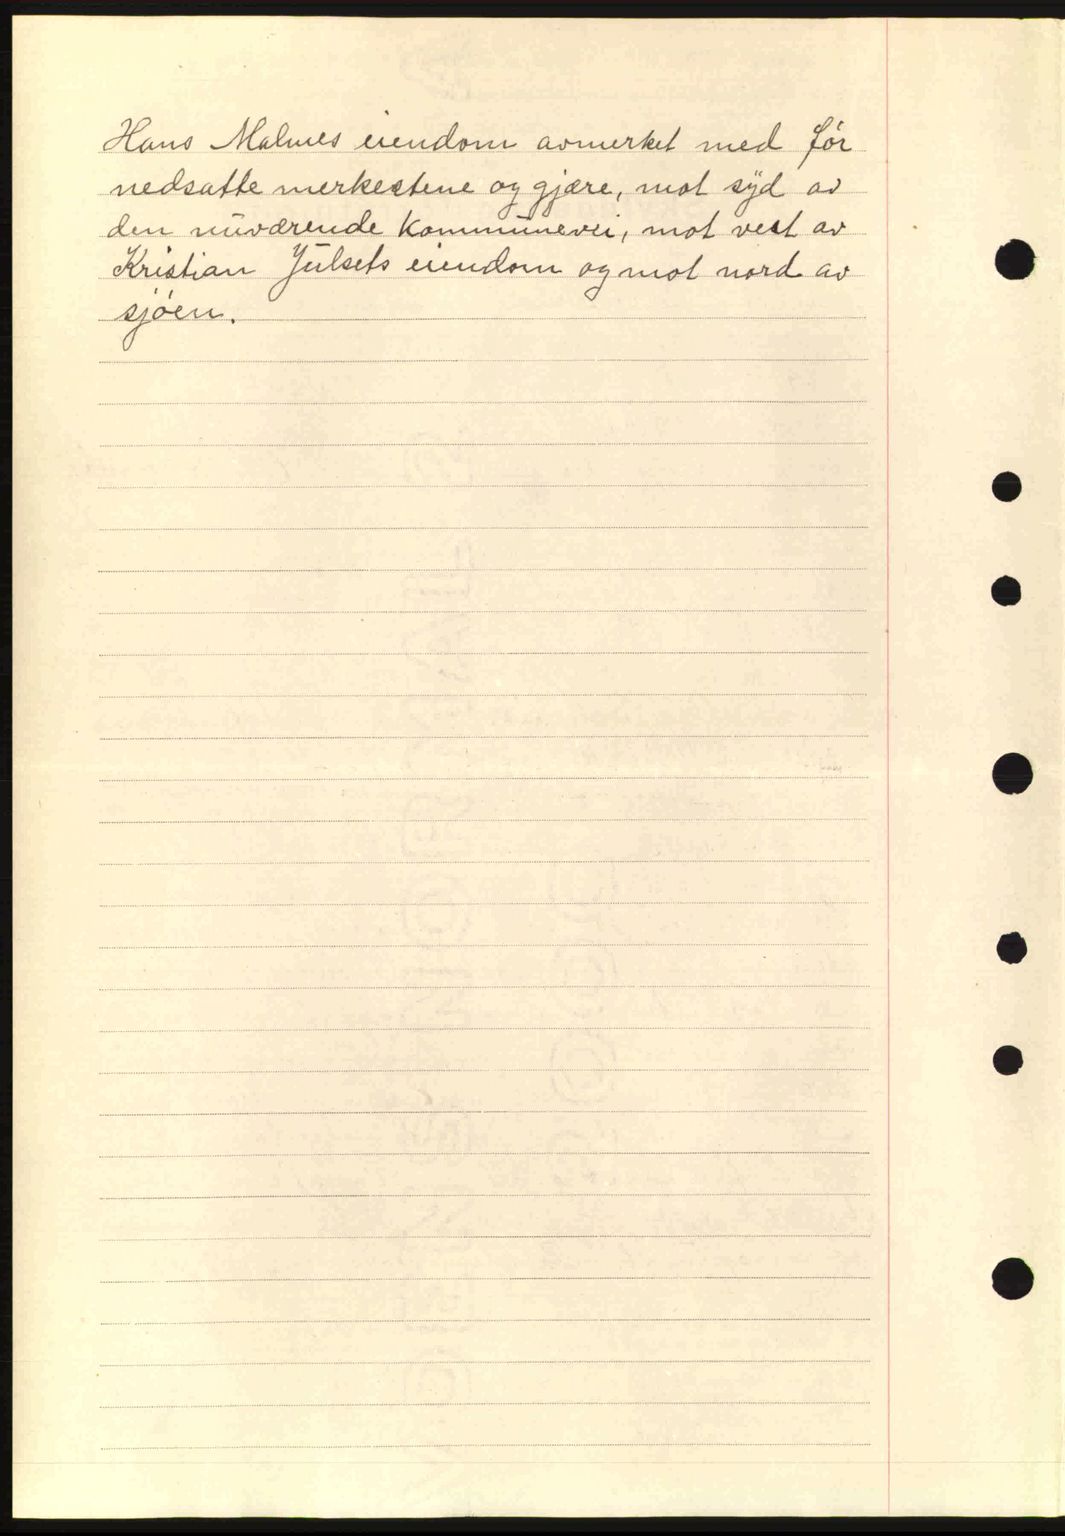 Hans Malmes eiendom avmerket med før
nedsatte merkestene og gjære, mot syd av
den nuværende kommunevei, mot vest av
Kristian Julsets eiendom og mot nord av
sjøen.